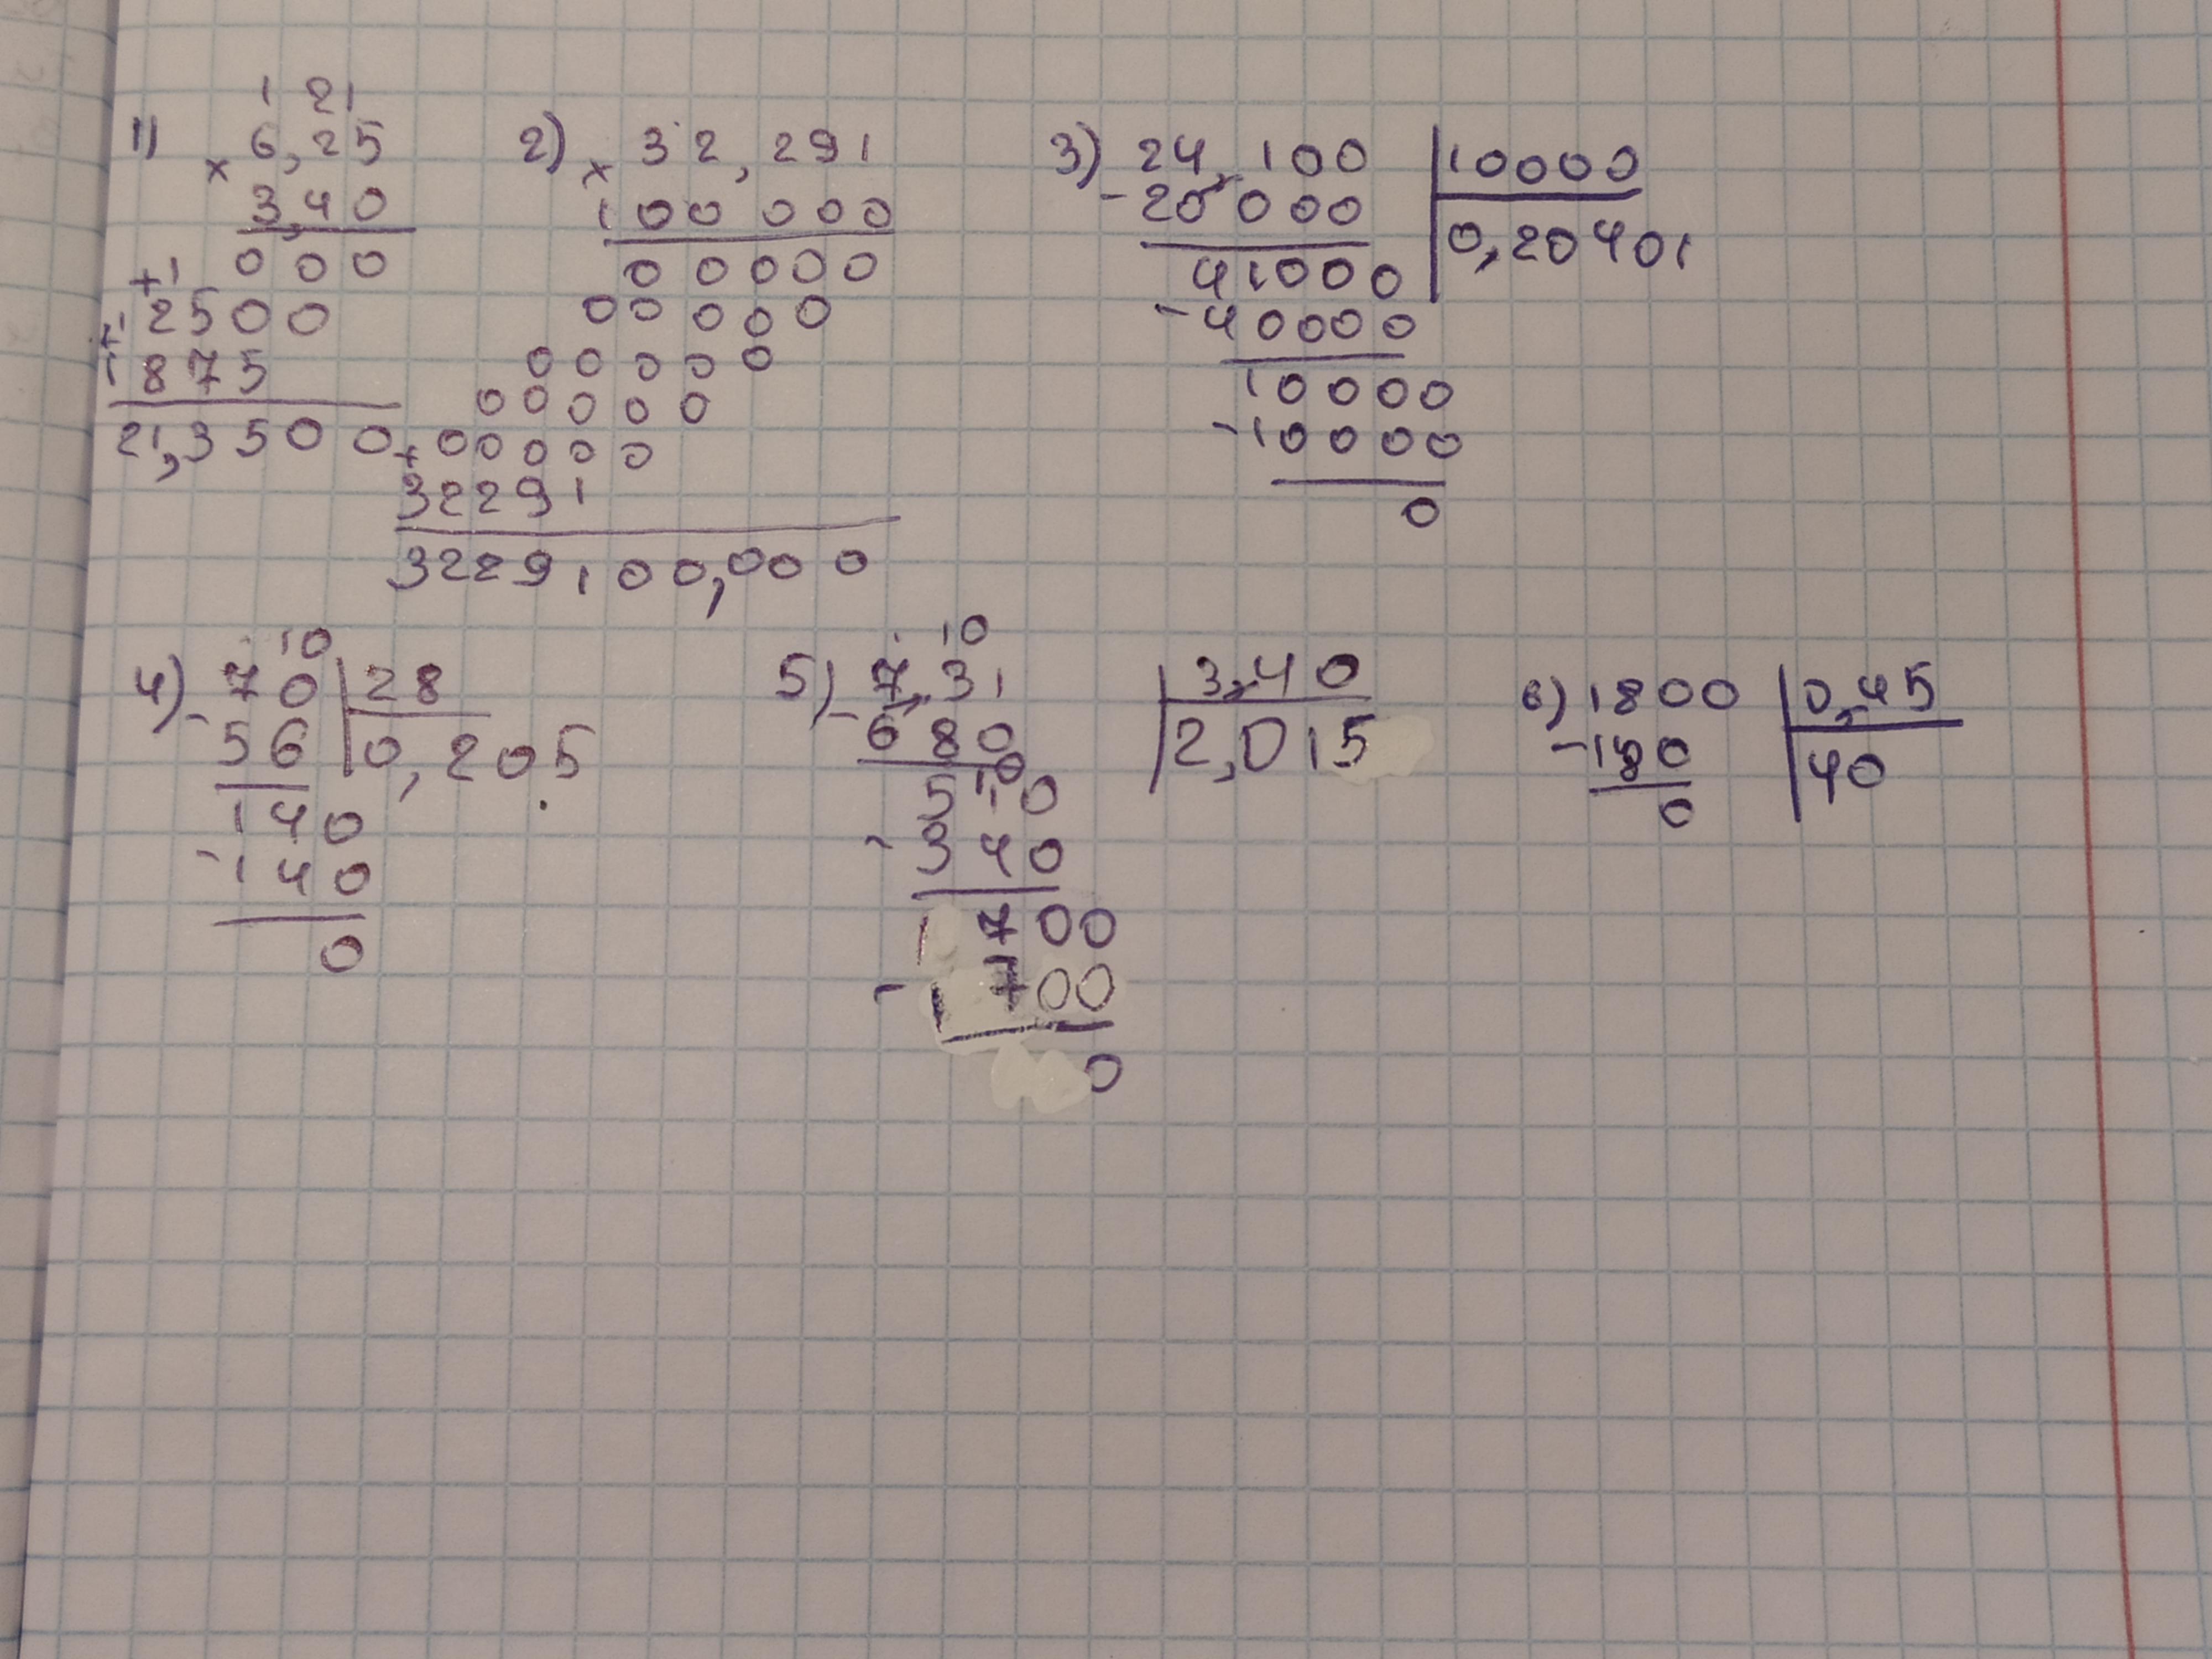 1 21
1) × 6,25
3,40
0 0 0
+1
2500
+1
1875
21,3500
2) × 32,291
100 000
00000
00000
00000
00000
+ 00000
32291
3229100,000
3) 24,100 | 10000
- 20 000 | 0,20401
41000
- 40000
10000
- 10000
0
10
4) 70 | 28
- 56 | 0,205
140
- 140
0
10
5) 7,31 | 3,40
- 680 | 2,015
10
510
- 340
1700
- 1700
0
6) 1800 | 0,45
- 180 | 40
0